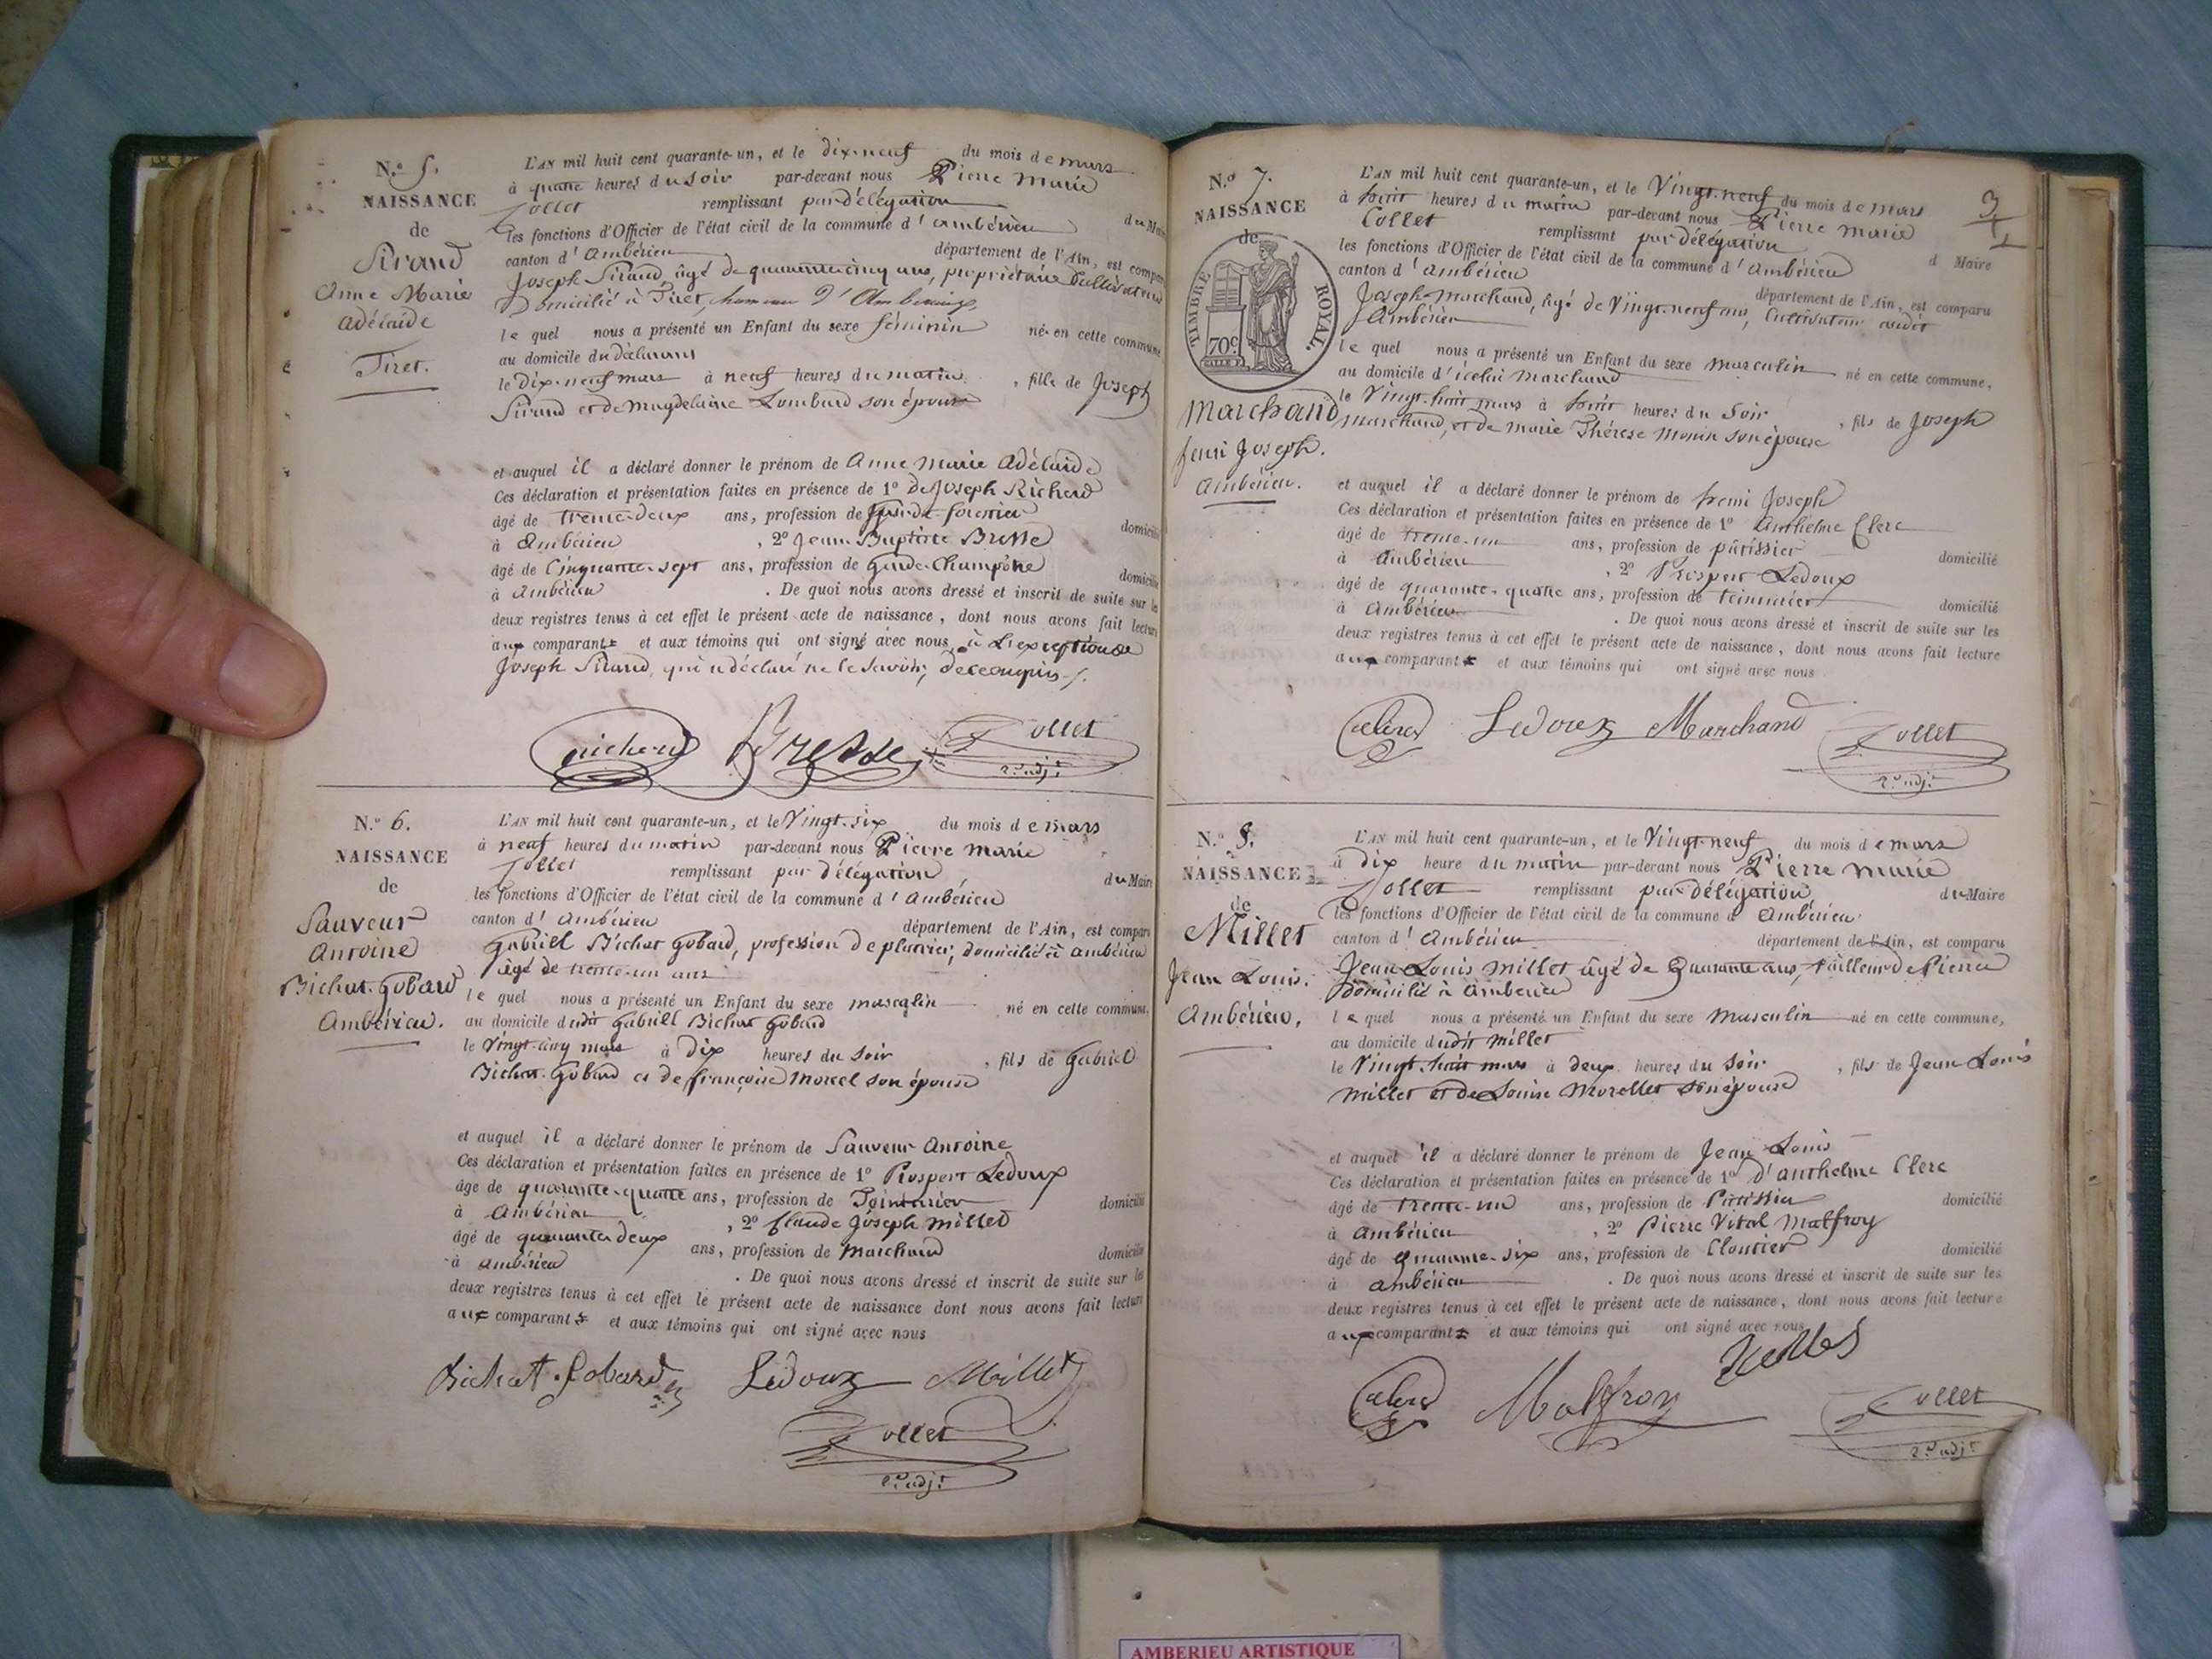 N.º 5.
NAISSANCE
de
Sirand
Anne Marie
Adélaïde
Tiret.
L'AN mil huit cent quarante-un, et le dix-neuf du mois de mars
à quatre heures du soir par-devant nous Pierre Marie
Collet remplissant par délégation du Maire
les fonctions d'Officier de l'état civil de la commune d'Ambérieu
canton d'Ambérieu département de l'Ain, est comparu
Joseph Sirand, âgé de quarante cinq ans, propriétaire &cultivateur
Domicilié à Tiret, hameau d'Ambérieu,
lequel nous a présenté un Enfant du sexe féminin né en cette commune
au domicile du déclarant
le Dix-neuf mars à neuf heures du matin, fille de Joseph
Sirand et de Magdelaine Lombard son épouse
et auquel il a déclaré donner le prénom de Anne Marie Adélaïde
Ces déclaration et présentation faites en présence de 1º de Joseph Richerd
âgé de trente-deux ans, profession de forestier domicilié
à Ambérieu, 2º Jean Baptiste Bresse
âgé de Cinquante-sept ans, profession de Garde-Champêtre domicilié
à Ambérieu. De quoi nous avons dressé et inscrit de suite sur les
deux registres tenus à cet effet le présent acte de naissance, dont nous avons fait lecture
aux comparants et aux témoins qui ont signé avec nous, à l'exception de
Joseph Sirand, qui a déclaré ne le savoir, de ce enquis.
Richerd Bresse Collet
2.e adj.t
N.º 6.
NAISSANCE
de
Sauveur
Antoine
Bichat-Gobard
Ambérieu.
L'AN mil huit cent quarante-un, et le Vingt-six du mois de mars
à neuf heures du matin par-devant nous Pierre Marie
Collet remplissant par délégation du Maire
les fonctions d'Officier de l'état civil de la commune d'Ambérieu
canton d'Ambérieu département de l'Ain, est comparu
Gabriel Bichat Gobard, profession de platrier, domicilié à Ambérieu
âgé de trente-un ans
lequel nous a présenté un Enfant du sexe masculin né en cette commune,
au domicile dudit Gabriel Bichat Gobard
le Vingt-cinq mars à Dix heures du soir, fils de Gabriel
Bichat-Gobard et de françoise Morel son épouse
et auquel il a déclaré donner le prénom de Sauveur Antoine
Ces déclaration et présentation faites en présence de 1º Prospert Ledoux
âge de quarante-quatre ans, profession de Teinturier domicilié
à Ambérieu, 2º Claude Joseph Millet
âgé de quarante deux ans, profession de Marchand domicilié
à Ambérieu. De quoi nous avons dressé et inscrit de suite sur les
deux registres tenus à cet effet le présent acte de naissance dont nous avons fait lecture
aux comparants et aux témoins qui ont signé avec nous
Bichat-Gobard Ledoux Millet
Collet
2.e adj.t
N.º 7.
NAISSANCE
de
TIMBRE ROYAL.
70c
Marchand
henri Joseph.
Ambérieu.
3
L'AN mil huit cent quarante-un, et le Vingt-neuf du mois de mars
à huit heures du matin par-devant nous Pierre Marie
Collet remplissant par délégation d Maire
les fonctions d'Officier de l'état civil de la commune d'Ambérieu
canton d'Ambérieu département de l'Ain, est comparu
Joseph Marchand, âgé de Vingt-neuf ans, Cultivateur audit
Ambérieu
lequel nous a présenté un Enfant du sexe masculin né en cette commune,
au domicile d'icelui Marchand
le Vingt-huit mars à huit heures du soir, fils de Joseph
Marchand, et de Marie Thérese Monin son épouse
et auquel il a déclaré donner le prénom de henri Joseph
Ces déclaration et présentation faites en présence de 1º Anthelme Clerc
âgé de trente-un ans, profession de pâtissier domicilié
à Ambérieu, 2º Prospert Ledoux
âgé de quarante-quatre ans, profession de teinturier domicilié
à Ambérieu. De quoi nous avons dressé et inscrit de suite sur les
deux registres tenus à cet effet le présent acte de naissance, dont nous avons fait lecture
aux comparants et aux témoins qui ont signé avec nous
Clerc Ledoux Marchand Collet
2.e adj.t
N.º 8.
NAISSANCE
de
Millet
Jean Louis.
Ambérieu.
L'AN mil huit cent quarante-un, et le Vingt-neuf du mois de mars
à Dix heure du matin par-devant nous Pierre Marie
Collet remplissant par délégation du Maire
les fonctions d'Officier de l'état civil de la commune d Ambérieu
canton d'Ambérieu département de l'Ain, est comparu
Jean Louis Millet âgé de Quarante ans, tailleur de Pierre
domicilié à Ambérieu
lequel nous a présenté un Enfant du sexe masculin né en cette commune,
au domicile dudit Millet
le Vingt-huit mars à deux heures du soir, fils de Jean Louis
Millet et de Louise Morellet son épouse
et auquel il a déclaré donner le prénom de Jean Louis
Ces déclaration et présentation faites en présence de 1º d'anthelme Clerc
âgé de trente-un ans, profession de Patissier domicilié
à Ambérieu, 2º Pierre Vital Malfroy
âgé de quarante-six ans, profession de Cloutier domicilié
à Ambérieu. De quoi nous avons dressé et inscrit de suite sur les
deux registres tenus à cet effet le présent acte de naissance, dont nous avons fait lecture
aux comparants et aux témoins qui ont signé avec nous
Clerc Malfroy Collet
2.e adj.t
AMBERIEU ARTISTIQUE